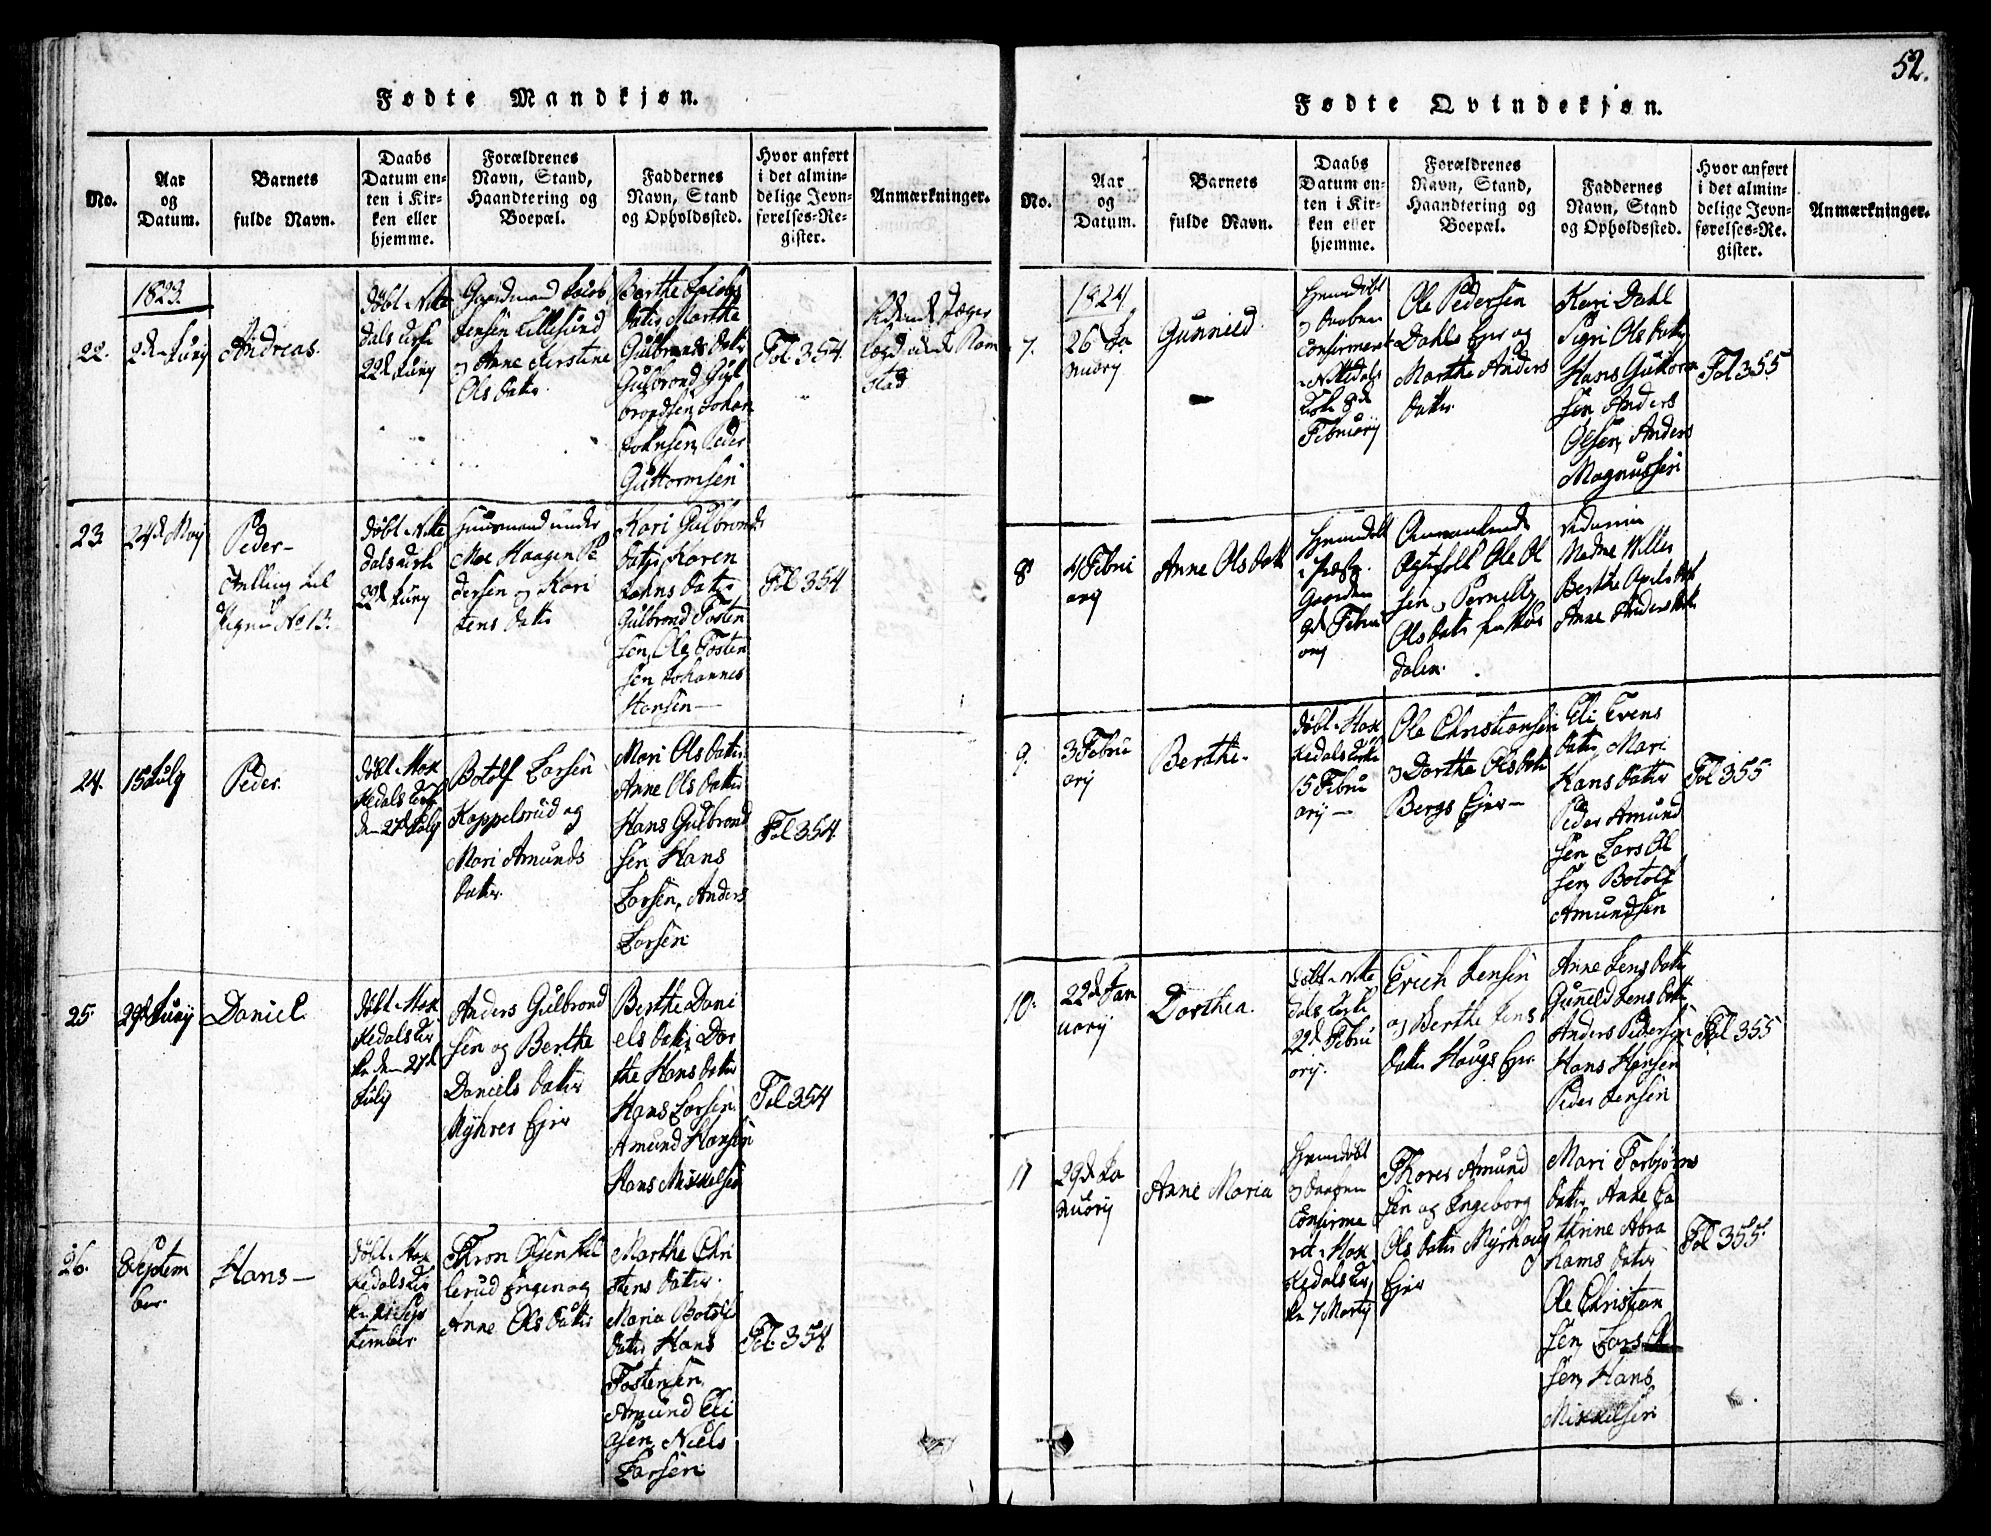 52.
Fødte Mandkjøn.
No.
Aar
og
Datum.
Barnets
fulde Navn.
Daabs
Datum en-
ten i Kir-
ken eller
hjemme.
Forældrenes
Navn, Stand,
Haandtering og
Boepæl.
Faddernes
Navn, Stand
og Opholdssted.
Hvor anført
i det almin-
delige Jevn-
førelses-Re-
gister.
Anmærkninger.
22.
1823.
2den Juny
Andreas.
døbt i Nite
dals Kirke
22d Juny
Gaardmand Jacob
Jensen Lillesund
og Anne Kirstine
Ols datter
Berthe Jacobs
datter Marthe
Gulbrands datter
Gulbrand Gul
brandsen, Johan
Johnsen, Peder
Guttormsen
Fol. 354.
23
24d May
Peder-
Tvilling til
No 13.
døbt i Nite
dals Kirke
22d Juny
Huusmand under
Moe Haagen Pe
dersen og Kari
Jens datter
Kari Gulbrands
datter Karen
Johns datter
Gulbrand Tosten
sen, Ole Tosten
sen Johannes
Hansen-
Fol 354
24.
15 July
Peder.
døbt i Hak
kedals Kirke
den 27d July
Botolf Larsen
Kappelsrud og
Mari Amunds
datter.
Mari Ols datter
Anne Ols datter
Hans Gulbrand
sen Hans
Larsen, Anders
Larsen
Fol 354.
25.
29d Juny
Daniel
døbt i Hak
kedals Kir
ke den 27d
July
Anders Gulbrand
sen og Berthe
Daniels datter
Myhrer Ejer
Berthe Dani
els datter Dor
the Hans datter
Hans Larsen
Amund Hansen
Hans Mikkelsen
Fol 354
26.
8 Septem
ber.
Hans-
døbt i Hak
kedals Kir
ke
tember
Thron Olsen
lerud Engen og
Anne Ols datter
Marthe Chri
stens datter.
Maria Botolfs
datter Hans
Tostensen,
Amund Eli
asen, Niels
Larsen
Fol. 354
Fødte Qvindekjøn.
No.
Aar
og
Datum.
Barnets
fulde Navn.
Daabs
Datum en-
ten i Kir-
ken eller
hjemme.
Forældrenes
Navn, Stand,
Haandtering og
Boepæl.
Faddernes
Navn, Stand
og Opholdssted.
Hvor anført
i det almin-
delige Jevn-
førelses-Re-
gister.
Anmærkninger.
7.
1824
26d Ja
nuary
Gunnild
Hjemdøbt
og Daaben
Confirmeret
i Nittedals
Kirke 8d
February
Ole Pedersen
Dahls Ejer og
Marthe Anders
datter.
Kari Dahl
Sigri Ols datter
Hans Guttorm
sen, Anders
Olsen, Anders
Magnussen
Fol 355
8
4 Febru
ary
Anne Ols datter
Hjemdøbt
i Præste
Gaarden
9d Febru
ary
Ole Ol
sen og Pernelle
Ols datter fra
dalen.
Madme Willer
Berthe
Anne Anders datter
9.
3 Febru
ary
Berthe-
døbt i Hak
kedals Kirke
15 Febru
ary-
Ole Christiansen
og Dorthe Ols datter
Bergs Ejer-
Eli Evens
datter, Mari
Hans datter
Peder Amund
sen Lars Ol
sen Botolf
Amundsen
Fol 355
10.
22d Jan
uary
Dorthea.
døbt i Nite
dals Kirke
22d Febru
ary.
Erich Jensen
og Berthe Jens
datter Haugs Ejer
Anne Jens datter
Gunild Jens datter
Anders Pedersen
Hans Hansen
Peder Jensen
Fol 355
11
29d Ja
nuary
Anne Maria
Hjemdøbt
og Daaben
Confirme
ret i Hak
kedals Kir
ke 7 Marty
Thores Amund
sen og Ingeborg
Ols datter Myrhaug
Ejer
Mari Torbjørns
datter Anne Ca
thrine Abra
hams datter
Ole Christian
sen, Lars Ol
sen, Hans
Mikkelsen
Fol 355.